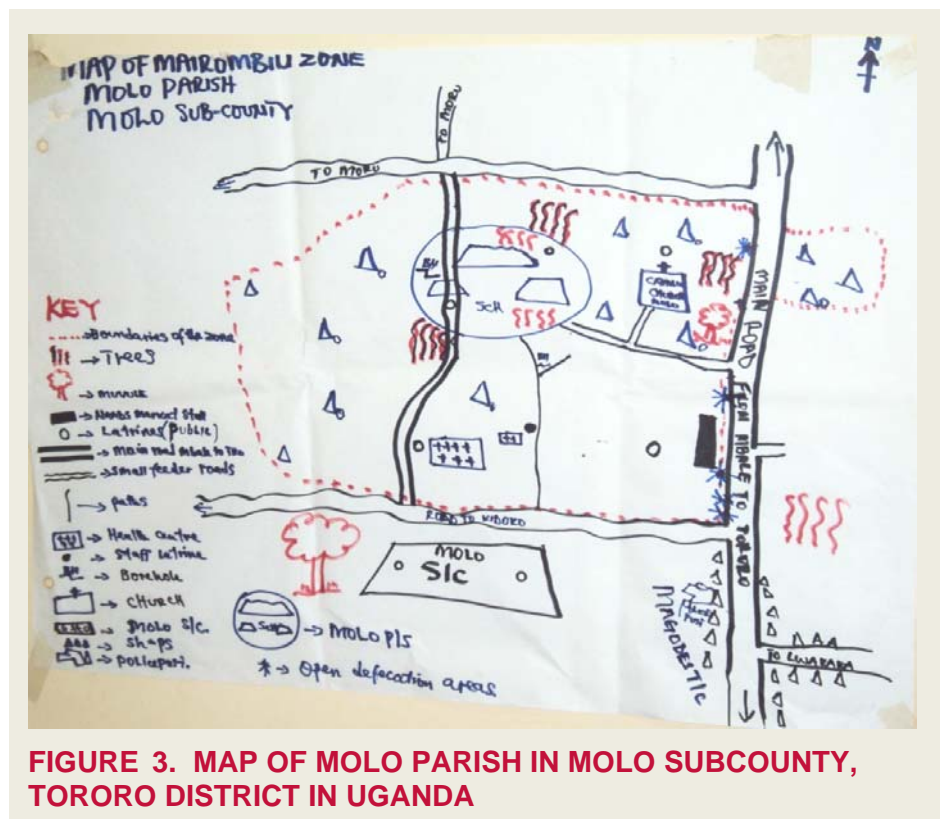 MAP OF MAIROMBILI ZONE
MOLO PARISH
MOLO SUB-COUNTY
N
TO MORU
TO MORU
BH
SCH
CHURCH
MOLO
MAIN ROAD FROM MBALE TO TORORO
ROAD TO KIDOKO
MOLO
S/C
MAGODES T/C
TO LWAKAKA
KEY
→ Boundaries of the zone
→ Trees
→ Latrines (Public)
→ main road Mbale to
→ small feeder roads
→ paths
→ Health centre
→ Staff latrine
→ Borehole
→ CHURCH
→ MOLO S/C.
→ shops
→ policepost.
SCH → MOLO P/S
* → Open defecation areas
FIGURE 3. MAP OF MOLO PARISH IN MOLO SUBCOUNTY,
TORORO DISTRICT IN UGANDA